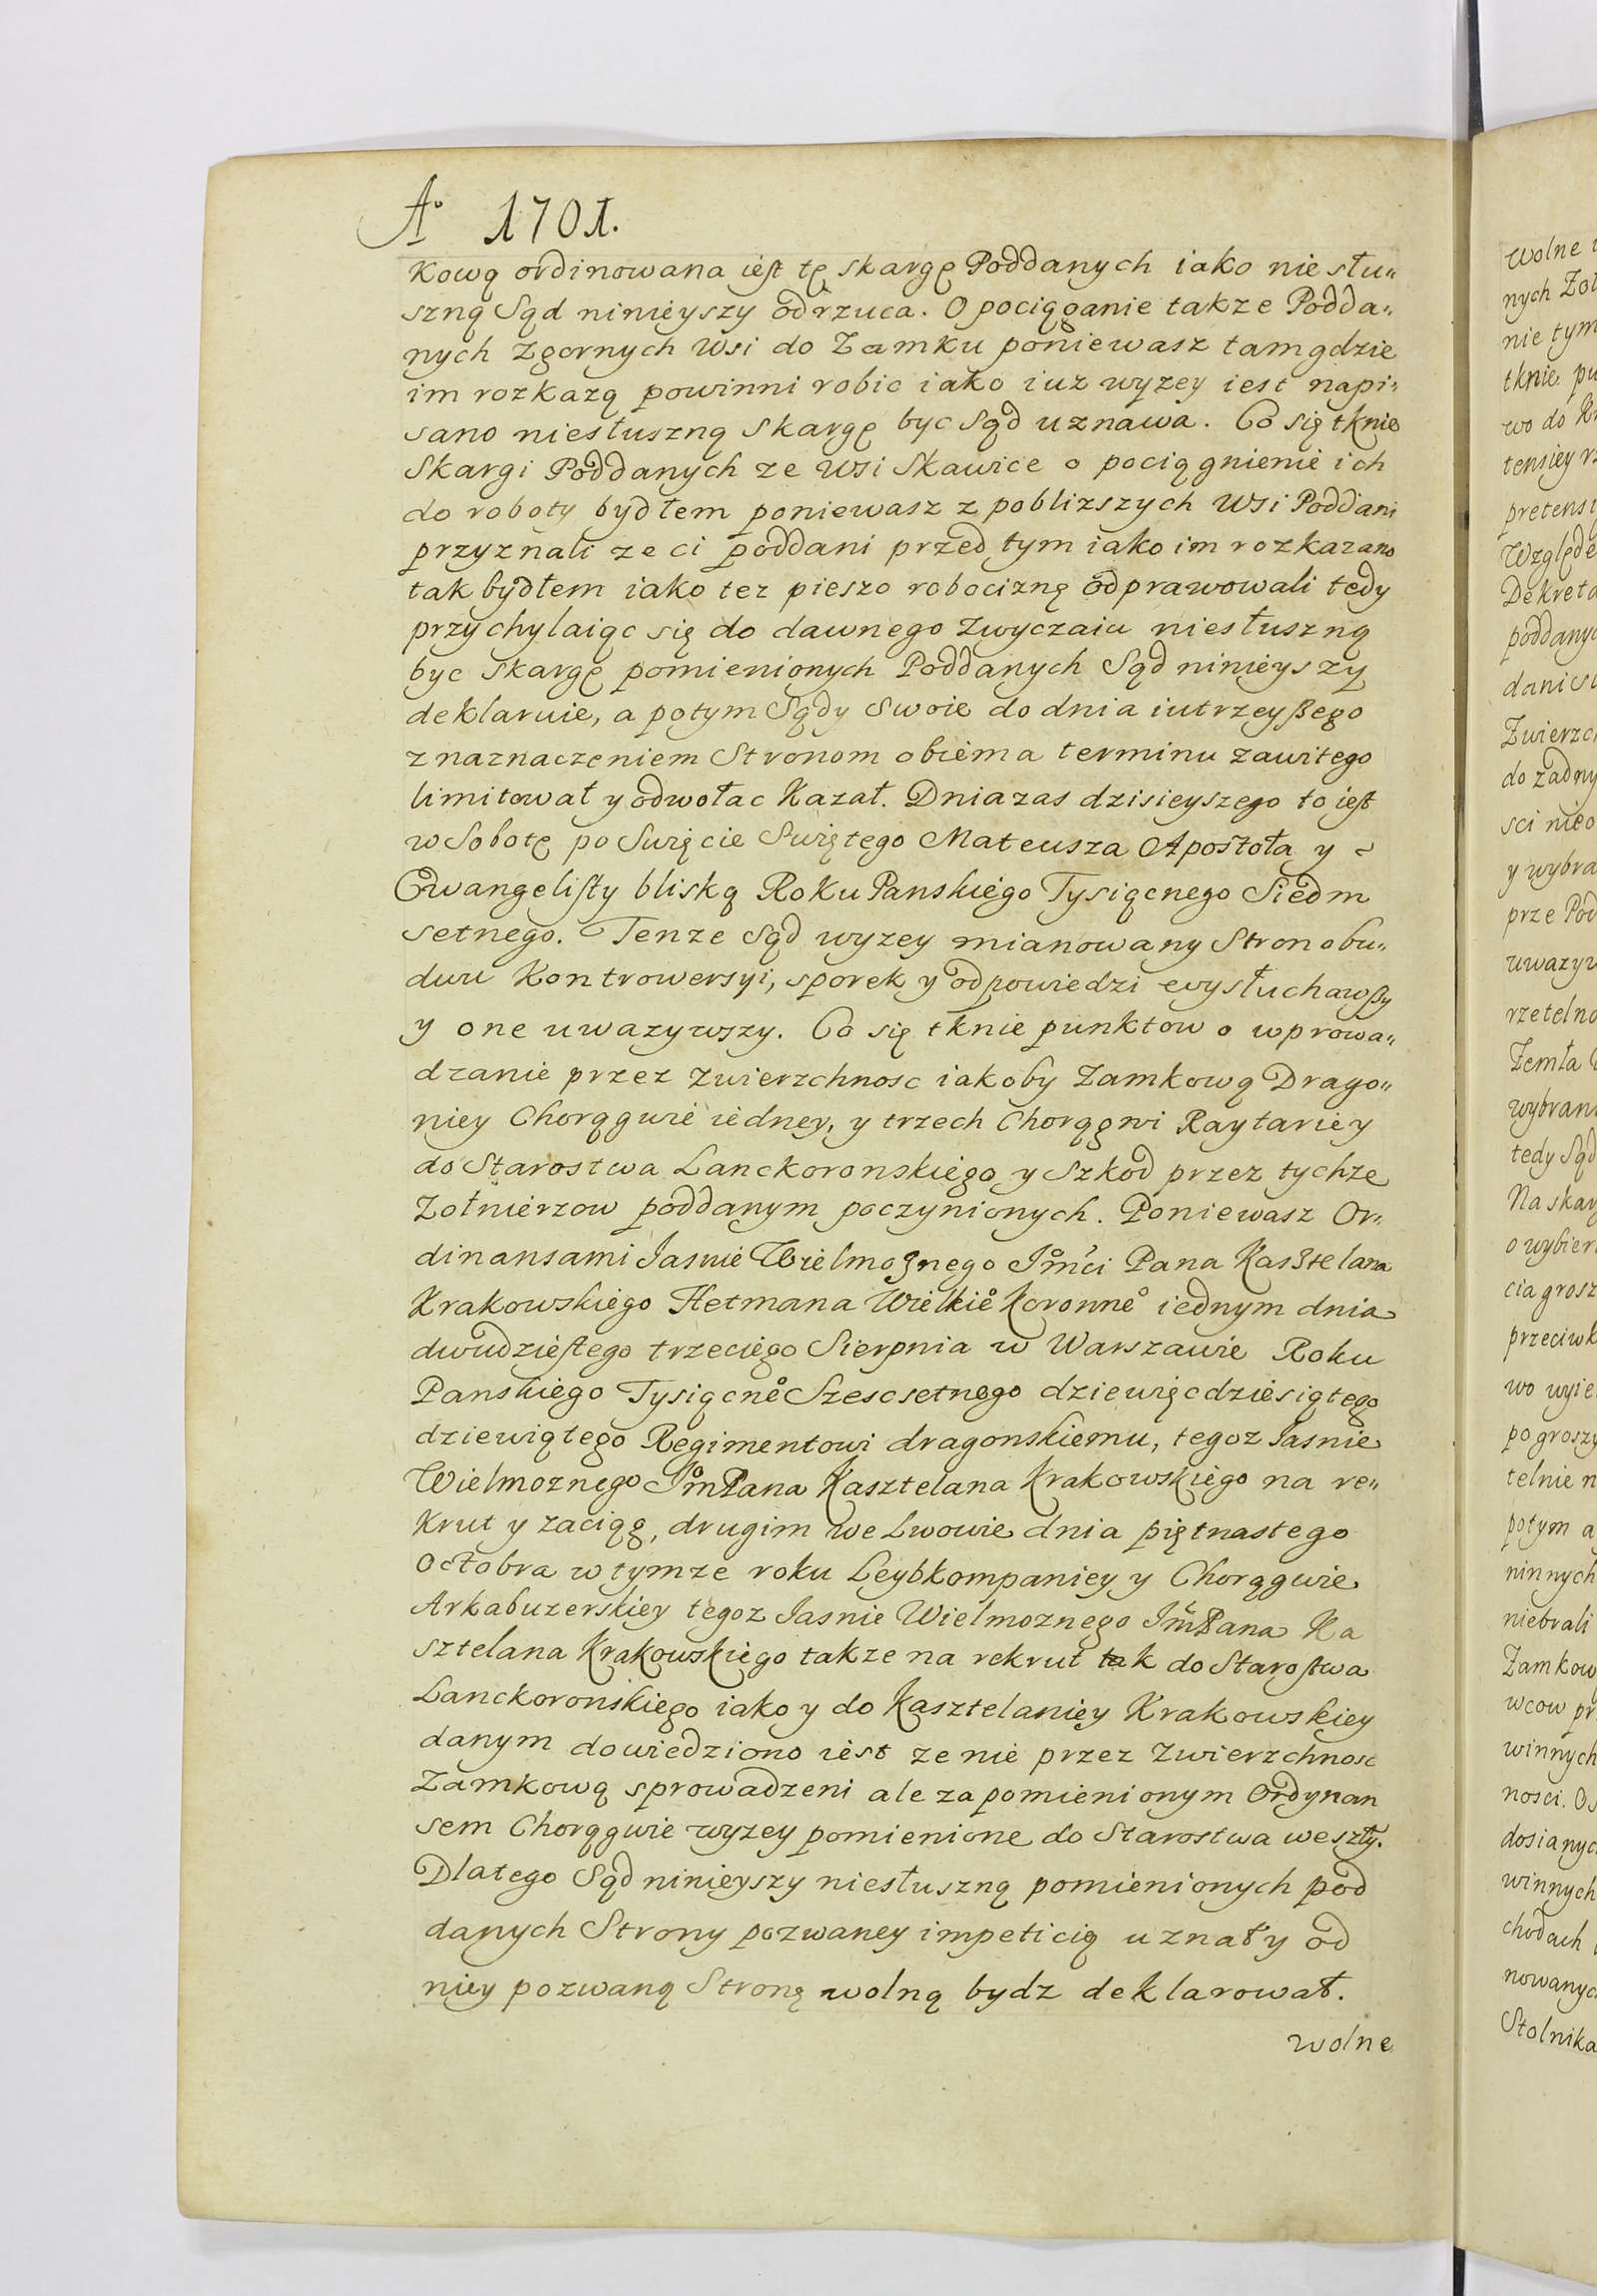 Aº 1701.
Kową ordinowana iest tę skargę Poddanych iako niesłu„
szną Sąd ninieyszy odrzuca. O pociąganie takze Podda„
nych Zgornych Wsi do Zamku poniewasz tam gdzie
im rozkazą powinni robic iako iuz wyzey iest napi„
sano niesłuszną Skargę byc Sąd uznawa. Co się tknie
Skargi Poddanych ze wsi Skawice o pociągnienie ich
do roboty bydłem poniewasz z poblizszych Wsi Poddani
przyznali ze ci poddani przed tym iako im rozkazano
tak bydłem iako tez pieszo robociznę odprawowali tedy
przychylaiąc się do dawnego Zwyczaiu niesłuszną
byc skargę pomienionych Poddanych Sąd ninieyszy
deklaruie, a potym Sądy Swoie do dnia iutrzeyßego
z naznaczeniem Stronom obiema terminu zawitego
limitował y odwołac Kazał. Dnia zas dzisieyszego to iest
w Sobotę po Swięcie Swiętego Mateusza Apostoła y
Ewangelisty bliską Roku Panskiego Tysiącnego Siedm
setnego. Tenze Sąd wyzey mianowany Stron obu„
dwu Kontrowersyi, sporek y odpowiedzi wysłuchawßy
y one uwazywszy. Co się tknie punktow o wprowa„
dzanie przez Zwierzchnosc iakoby Zamkową Drago„
niey Chorągwie iedney, y trzech Chorągwi Raytariey
do Starostwa Lanckoronskiego y Szkod przez tychze
Zołnierzow poddanym poczynionych. Poniewasz Or„
dinansami Iasnie Wielmoznego Imci Pana Kasztelana
Krakowskiego Hetmana Wielkieº Koronneº iednym dnia
dwudziestego trzeciego Sierpnia w Warszawie Roku
Panskiego Tysiącneº Szescsetnego dziewięcdziesiątego
dziewiątego Regimentowi dragonskiemu, tegoz Iasnie
Wielmoznego Im Pana Kasztelana Krakowskiego na re„
krut y zaciąg, drugim we Lwowie dnia piętnastego
Octobra w tymze roku Leybkompaniey y Chorągwie
Arkabuzerskiey tegoz Iasnie Wielmoznego Im Pana Ka
sztelana Krakowskiego takze na rekrut tak do Starostwa
Lanckoronskiego iako y do Kasztelaniey Krakowskiey
danym dowiedziono iest ze nie przez Zwierzchnosc
Zamkową sprowadzeni ale za pomienionym Ordynan
sem Chorągwie wyzey pomienione do Starostwa weszły.
Dlatego Sąd ninieyszy niesłuszną pomienionych pod
danych Strony pozwaney impeticią uznał y od
niey pozwaną Stronę wolną bydz deklarował.
wolne
wolne
nych Zoł
nie tym
tknie pu
wo do
tensiey
pretensi
Względe
Dekreta
poddanyc
dani
Zwierzch
do zadny
sci nieo
y wybra
prze Pod
uwazyw
rzetelno
Zemła
wybran
tedy Sąd
Na skar
o wybier
cia grosz
przeciwk
wo wyie
po groszy
telnie n
potym a
ninnych
niebrali
Zamkow
wcow pr
winnych
nosci. Os
dosianyc
winnych
chodach
nowanyc
Stolnika